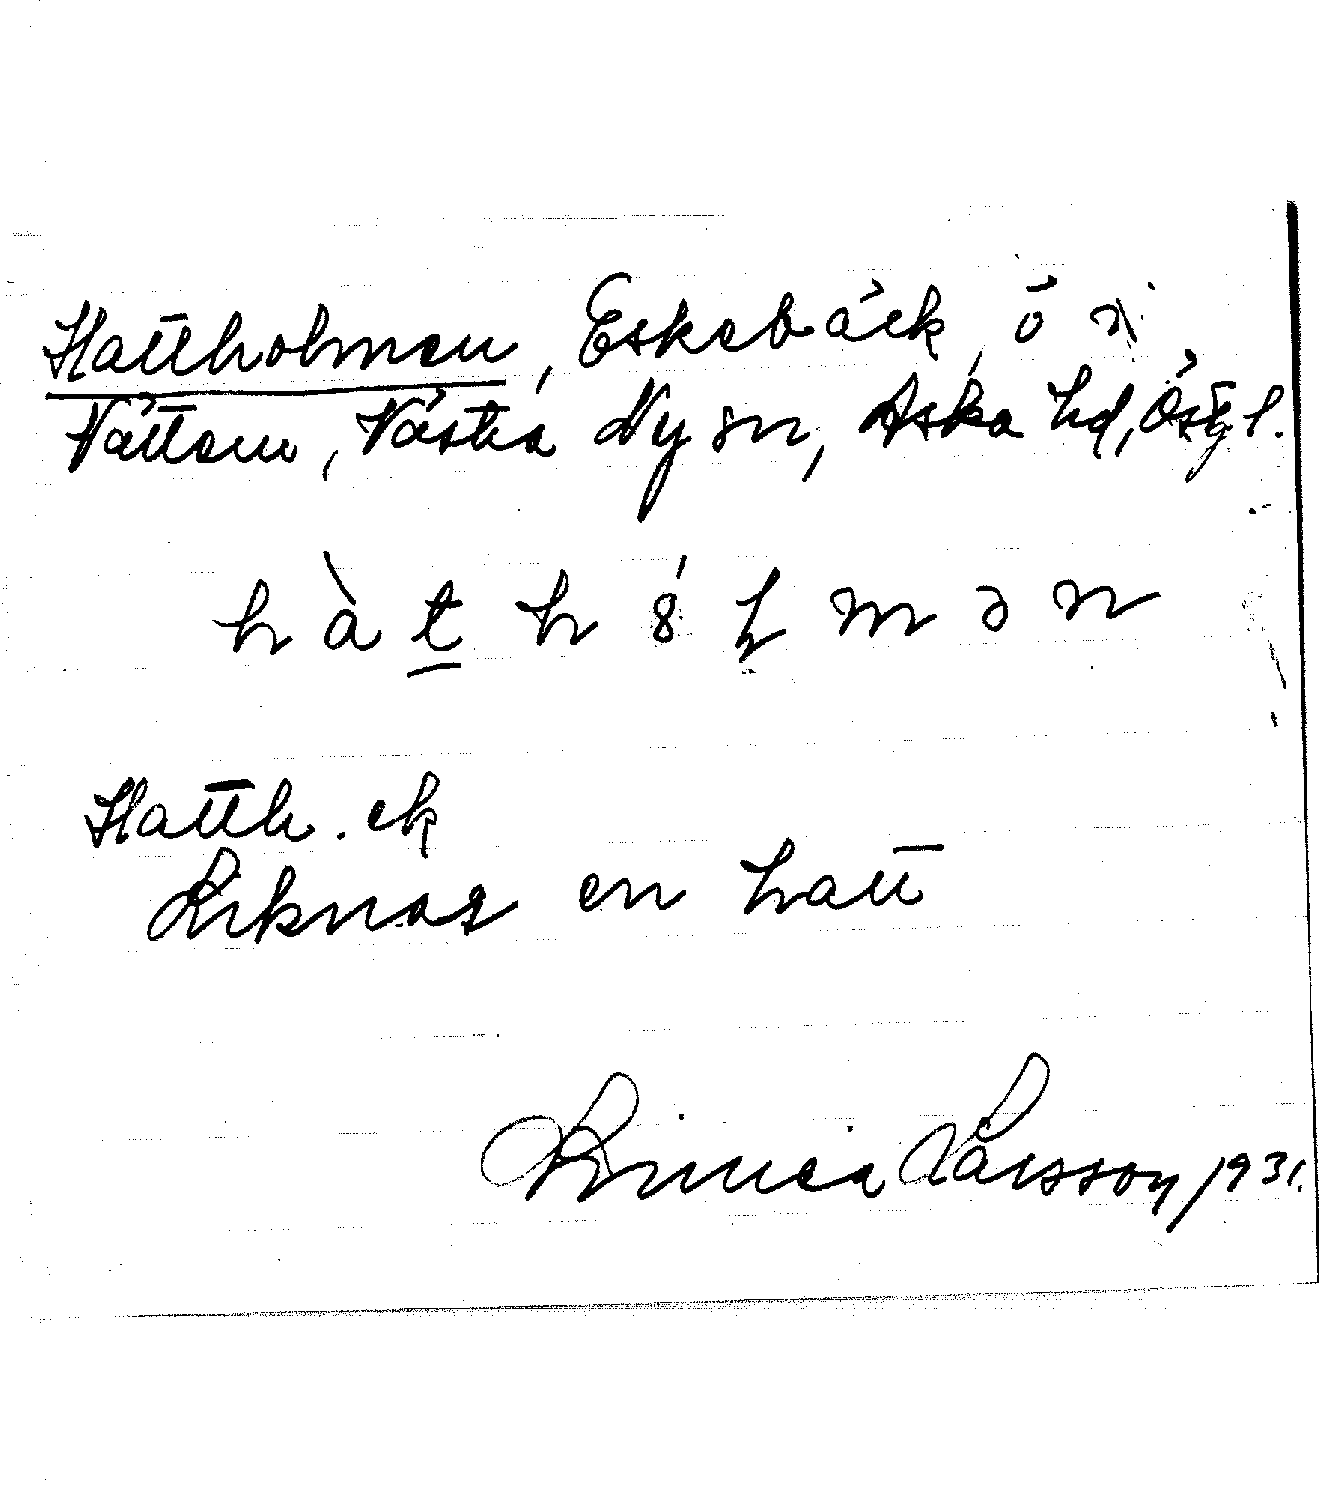 Hattholmen, Eskebäck, ö i
Vättern, Västra Ny sn, Aska hd, Östgl.
hàthólmən
Hatth. ek
Liknar en hatt
Linnea Larsson, 1931.